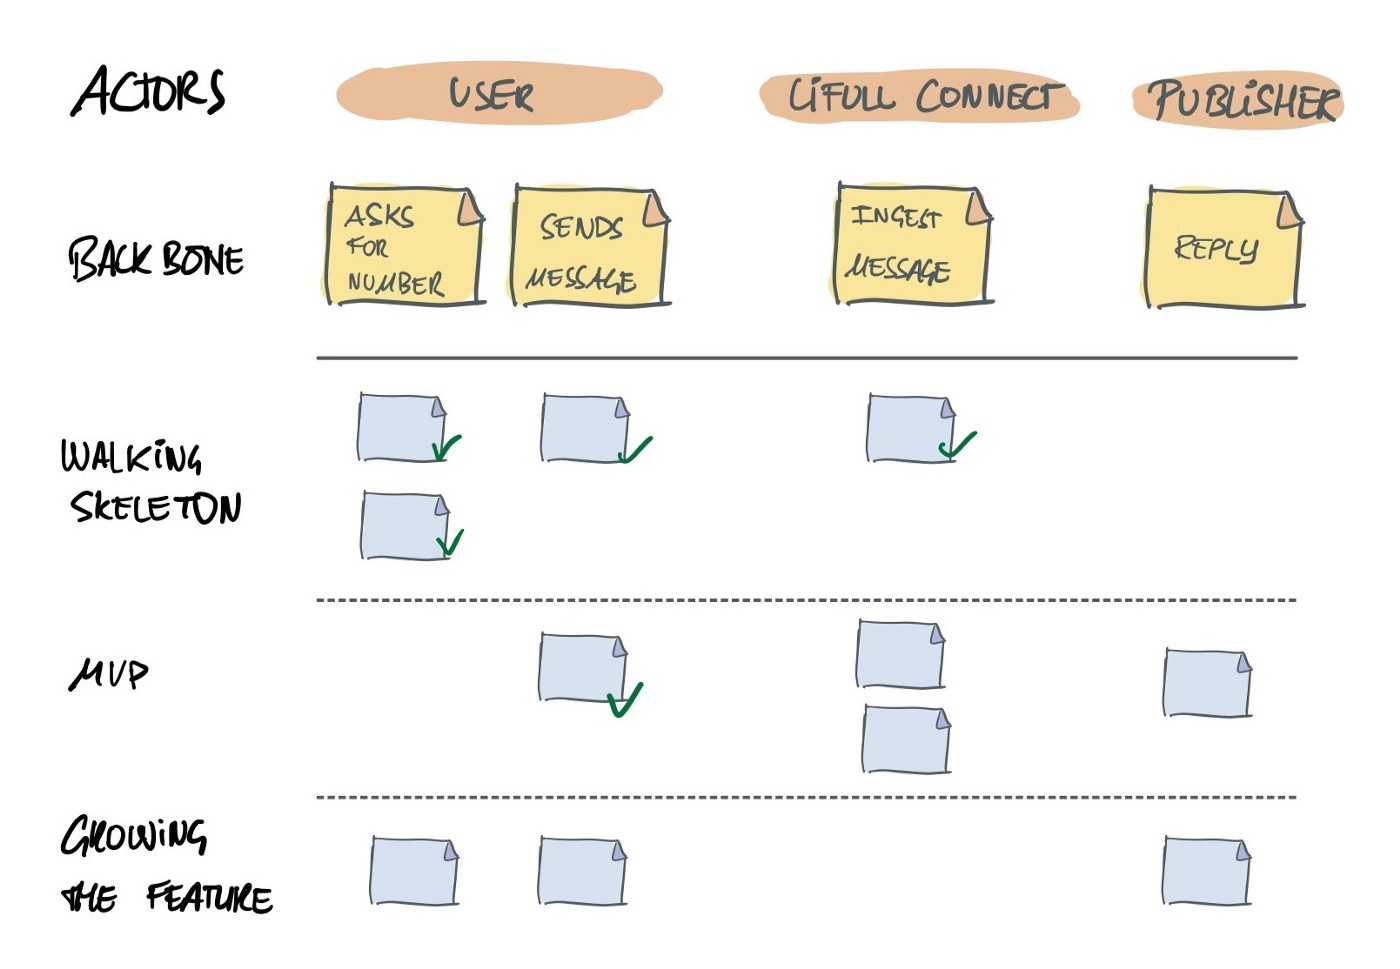 ACTORS
USER
LIFULL CONNECT
PUBLISHER
BACKBONE
ASKS
FOR
NUMBER
SENDS
MESSAGE
INGEST
MESSAGE
REPLY
WALKING
SKELETON
MVP
GROWING
THE FEATURE